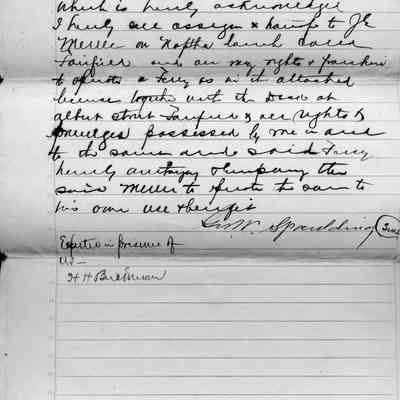 which is hereby acknowledged
I hereby sell assign & transfer to Jc
Merle on Naptha launch called
Fairfield and all my rights & franchise
to operate a Ferry as in the attached
license together with the Dock at
Albert Street Fairfield & all rights &
privileges possessed by me in and
to the same and said Ferry
hereby authorizing & empowering the
said Merle to operate the same to
his own use & benefit
Geo. W. Spaulding
Executed in presence of
us—
H H